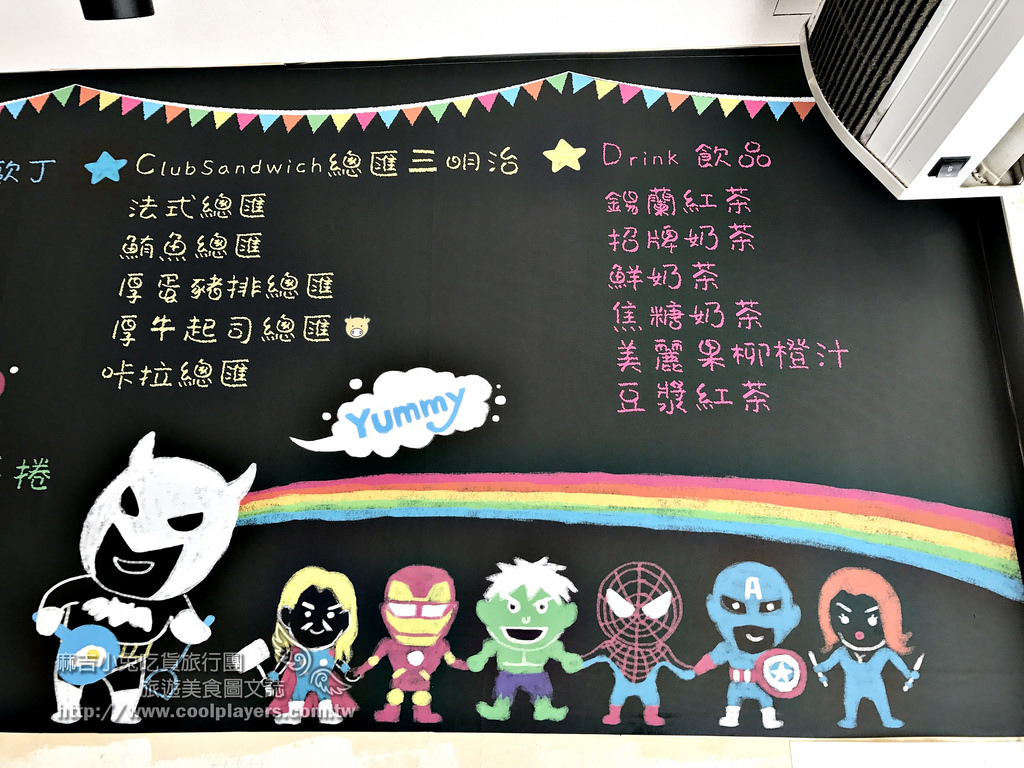 歐丁
ClubSandwich總匯三明治
法式總匯
鮪魚總匯
厚蛋豬排總匯
厚牛起司總匯
咔拉總匯
捲
Drink 飲品
錫蘭紅茶
招牌奶茶
鮮奶茶
焦糖奶茶
美麗果柳橙汁
豆漿紅茶
Yummy
A
麻吉小兔吃貨旅行團
旅遊美食圖文誌
http://www.coolplayers.com.tw